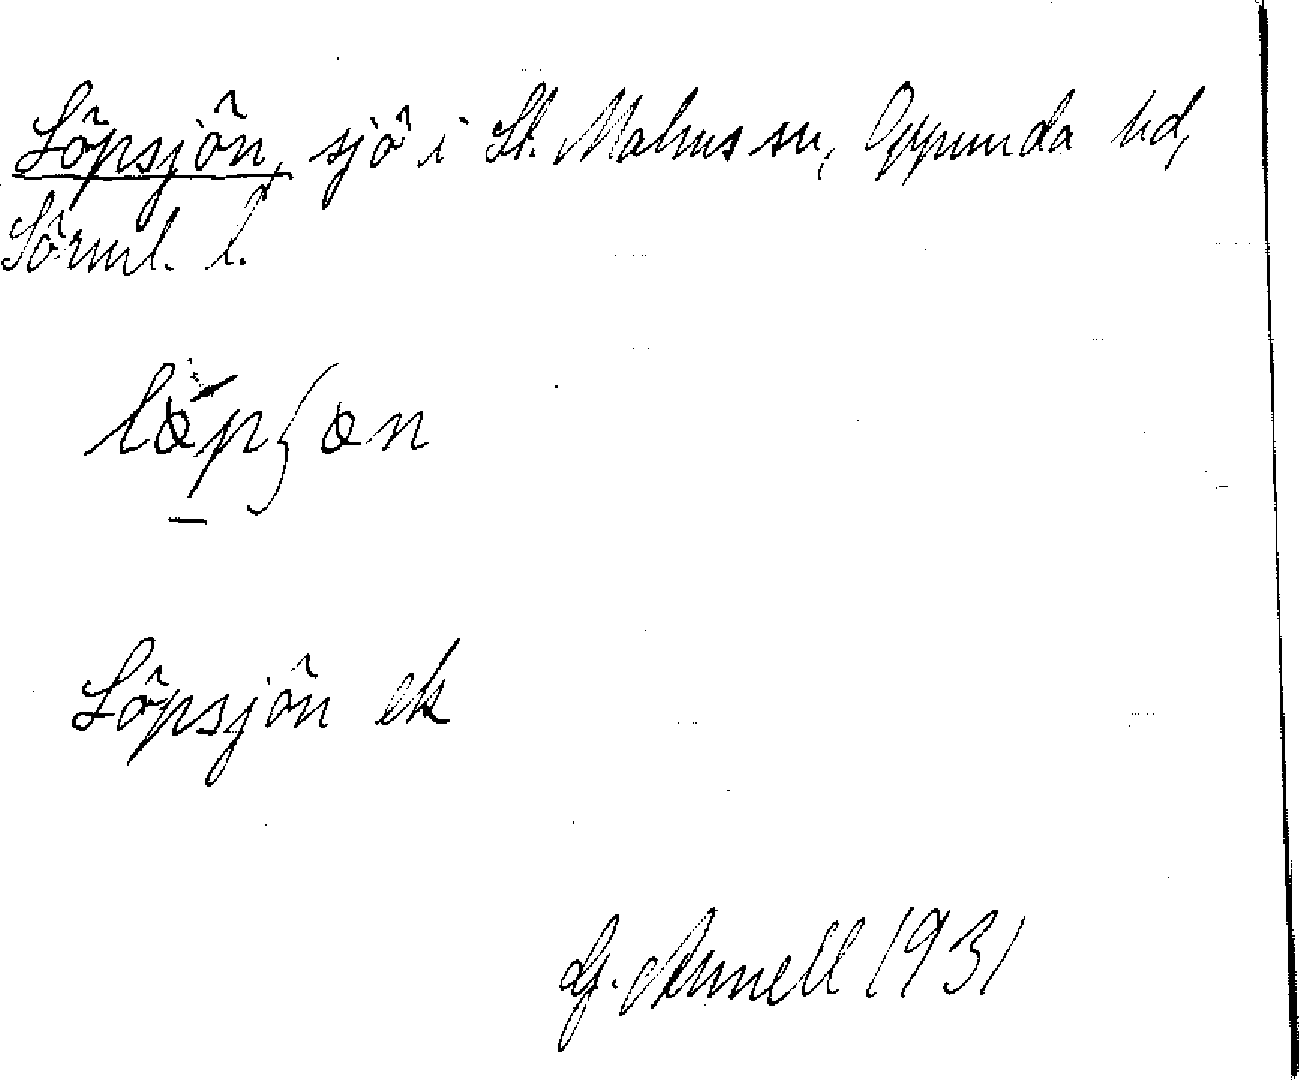 Löpsjön, sjö i St. Malms sn, Oppunda hd,
Sörml. l.
Löpsjön ek
G. Arnell 1931